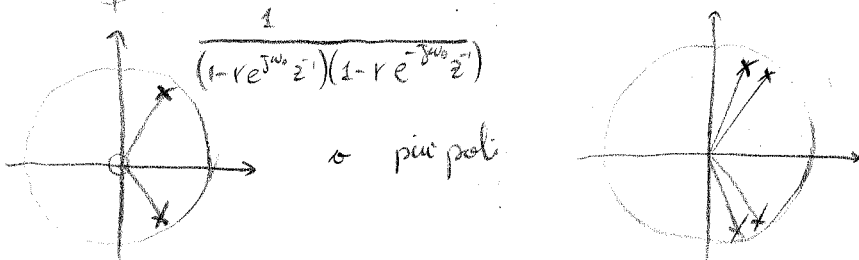 1
(1-re^{jω₀} z^{-1})(1-re^{-jω₀} z^{-1})
o più poli